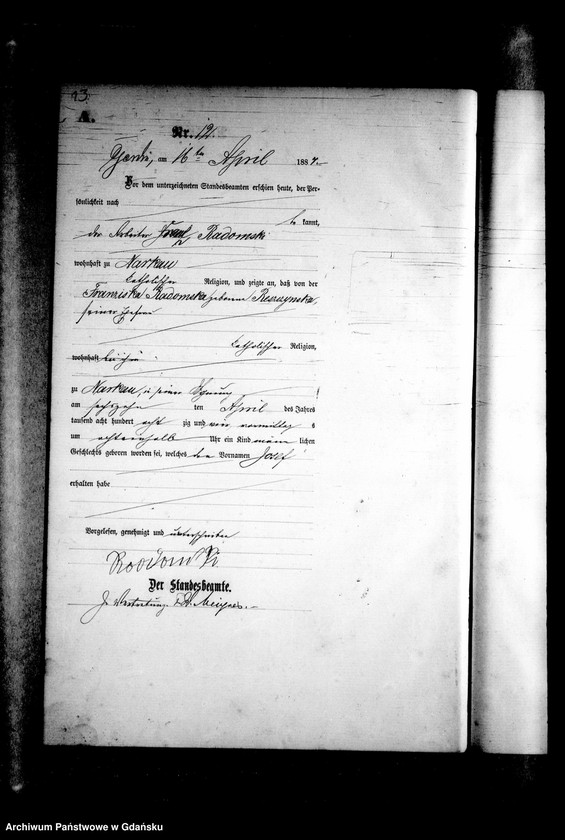 13.
A.
Nr. 12.
am 16ten April 1884.
Vor dem unterzeichneten Standesbeamten erschien heute, der Per-
sönlichkeit nach
be kannt,
der Arbeiter Radomski
wohnhaft zu Narkau
katholischer Religion, und zeigte an, daß von der
Franziska Radomska geborene
seiner Ehefrau
katholischer Religion,
wohnhaft bei ihm
zu Narkau, in seiner Wohnung
am sechszehn ten April des Jahres
tausend acht hundert acht zig und vier vormittags
um achteinhalb Uhr ein Kind männ lichen
Geschlechts geboren worden sei, welches den Vornamen Josef
erhalten habe
Vorgelesen, genehmigt und unterschrieben
Radomski
Der Standesbeamte.
In Vertretung.
Archiwum Państwowe w Gdańsku